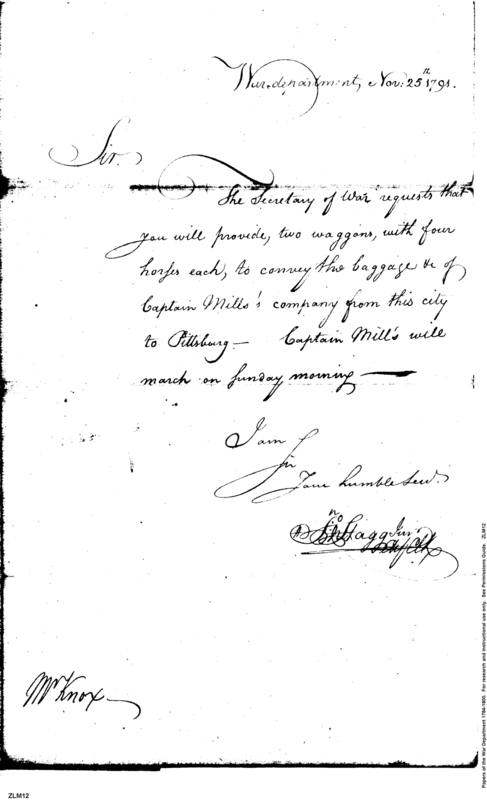 War department, Nov: 25th 1791.
Sir.
The Secretary of War requests that
you will provide, two waggons, with four
horses each, to convey the baggage &c of
Captain Mills's company from this city
to Pittsburg — Captain Mill's will
march on Sunday morning —
I am
Sir
Your humble Servt.
Jno Stagg Junr
Mr Knox
ZLM12
Papers of the War Department 1784-1800. For research and instructional use only. See Permissions Guide. ZLM12